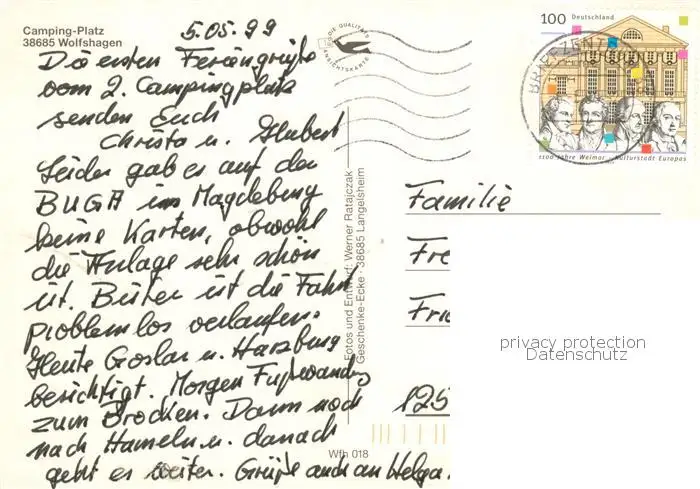 Camping-Platz
38685 Wolfshagen
5.05.99
Die ersten Feriengrüße
vom 2. Campingplatz
senden Euch
Christa u. Hubert
Leider gab es auf der
BUGA in Magdeburg
keine Karten, obwohl
die Anlage sehr schön
ist. Bisher ist die Fahrt
problemlos verlaufen.
Heute Goslar u. Harzburg
besichtigt. Morgen Fußwandg
zum Brocken. Dann noch
nach Hameln u. danach
geht es weiter. Grüße auch an Helga.
DIE QUALITÄTS
ANSICHTSKARTE
Fotos und Entwurf: Werner Ratajczak
Geschenke-Ecke · 38685 Langelsheim
Wfh 018
100 Deutschland
BRIEFZENTR
1100 Jahre Weimar · Kulturstadt Europas
Familie
Fre
Frie
125
privacy protection
Datenschutz